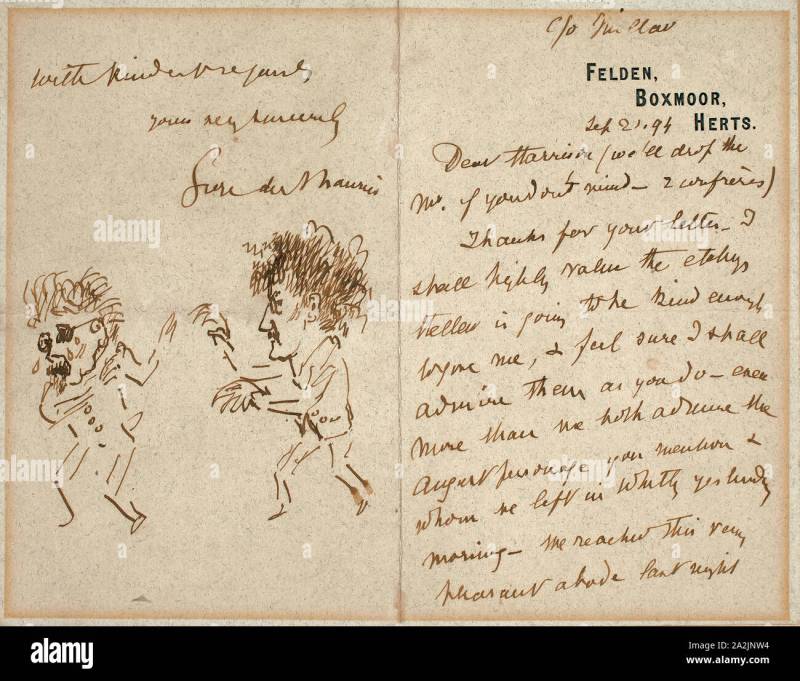 c/o
FELDEN,
BOXMOOR,
HERTS.
Sep 21. 94
Dear Harrison (we'll drop the
Mr. if you don't mind — 2 confrères)
Thanks for your letter — I
shall highly value the etchings
Pellew is going to be kind enough
to give me, & feel sure I shall
admire them as you do — even
more than we both admire the
august personage you mention &
whom we left in Whitby yesterday
morning — We reached this very
pleasant abode last night
With kindest regards,
yours very sincerely
du Maurier
alamy
alamy
alamy
alamy
alamy
Image ID: 2A2JNW4
www.alamy.com